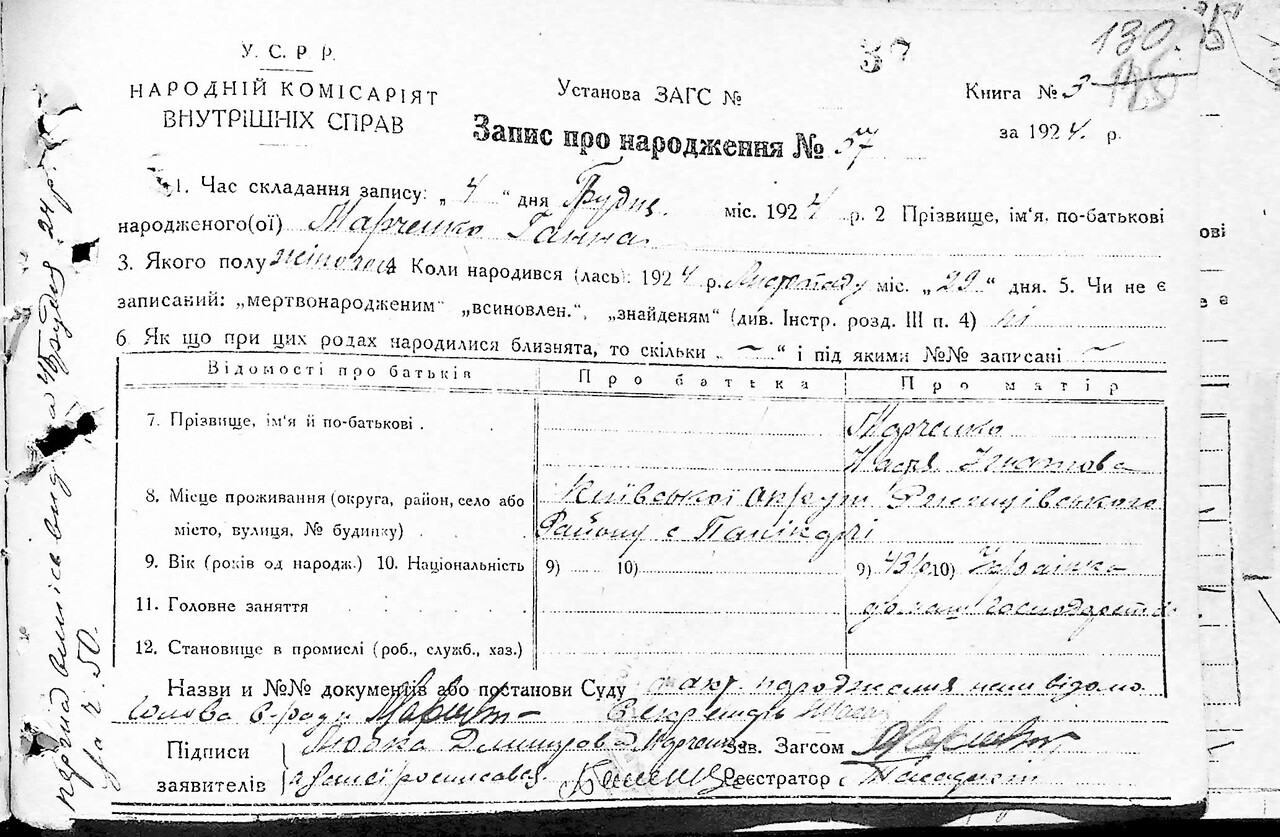 130.
У. С. Р. Р.
НАРОДНІЙ КОМІСАРІЯТ
ВНУТРІШНІХ СПРАВ
Установа ЗАГС №
Книга № 3
Запис про народження № 57
за 1924 р.
1. Час складання запису: „ 4 “ дня Грудня міс. 1924 р. 2 Прізвище, ім'я, по-батькові
народженого(ої) Марченко Ганна
3. Якого полу жіночого 4 Коли народився (лась): 1924 р. Листопаду міс. „ 29 “ дня. 5. Чи не є
записаний: „мертвонародженим“ „всиновлен.“, „знайденям“ (див. Інстр. розд. III п. 4) ні
6 Як що при цих родах народилися близнята, то скільки „ — “ і під якими №№ записані —
Відомості про батьків Про батька Про матір
7. Прізвище, ім'я й по-батькові . . Марченко
Настя
8. Місце проживання (округа, район, село або Київської округи Ржищівського
місто, вулиця, № будинку) . . Району с
9. Вік (років од народж.) 10. Національність 9) 10) 9) 43 р 10) Українка
11. Головне заняття . . . .
12. Становище в промислі (роб., служб., хаз.)
Назви и №№ документів або постанови Суду факт народження нам відомо
Голова с-ради Секретарь
Підписи Зав. Загсом
заявителів Реєстратор